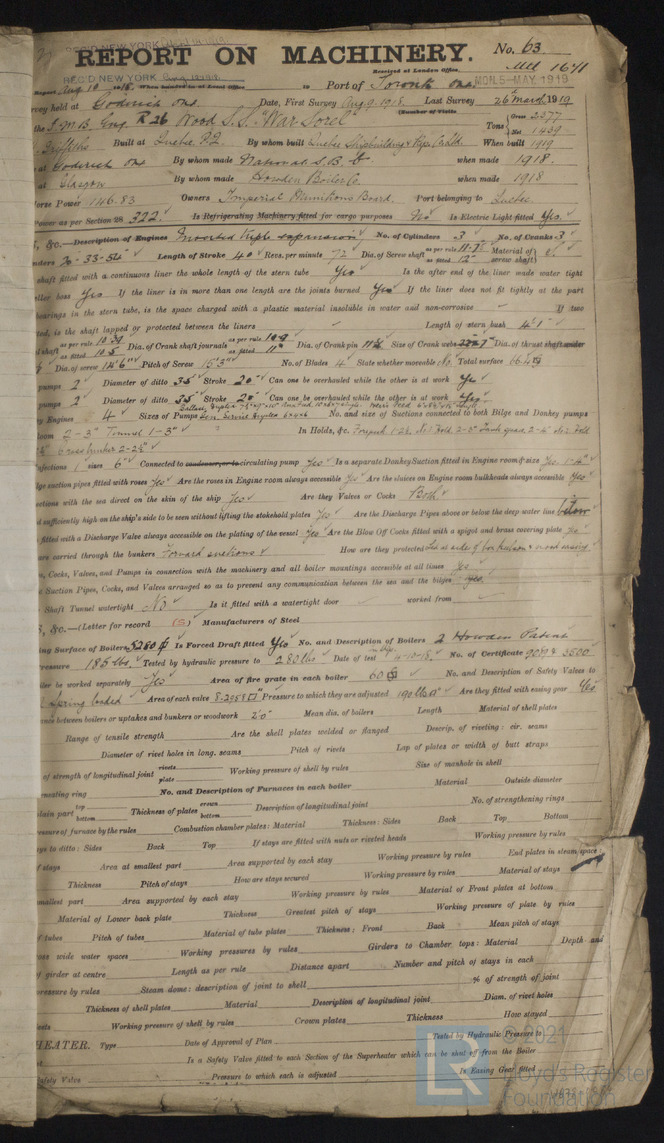 REC'D NEW YORK
REPORT ON MACHINERY. No. 63
REC'D NEW YORK Received at London Office
Aug 10 1918 When handed in at Local Office Port of Toronto Ont. MON. 5-MAY 1919
held at Goderich Ont. Date, First Survey Aug 9. 1918. Last Survey 26th March 1919
(Number of Visits
Eng. R 26 Wood S.S. "War Sorel" Tons Gross 2377
Net 1439
Griffiths Built at Quebec P.Q. By whom built Quebec Shipbuilding & Rep. Co. Ltd. When built 1919
at Goderich Ont By whom made National S. B. Co when made 1918.
at Glasgow By whom made Howden Boiler Co. when made 1918
Horse Power 146.83 Owners Imperial Munitions Board. Port belonging to Quebec
Power as per Section 28 322. Is Refrigerating Machinery fitted for cargo purposes No Is Electric Light fitted Yes.
, &c.—Description of Engines Inverted triple expansion No. of Cylinders 3 No. of Cranks 3
20-33-54" Length of Stroke 40" Revs. per minute 72 Dia. of Screw shaft as per rule as fitted 12" Material of screw shaft
shaft fitted with a continuous liner the whole length of the stern tube Yes Is the after end of the liner made water tight
boss Yes If the liner is in more than one length are the joints burned Yes If the liner does not fit tightly at the part
bearings in the stern tube, is the space charged with a plastic material insoluble in water and non-corrosive If two
ted, is the shaft lapped or protected between the liners Length of stern bush 4'-1"
shaft as per rule as fitted 10.5 Dia. of Crank shaft journals as per rule as fitted 11" Dia. of Crank pin Size of Crank webs Dia. of thrust shaft under
Dia. of screw 14'6" Pitch of Screw 15'3" No. of Blades 4 State whether moveable No. Total surface 66.4
pumps 2 Diameter of ditto 3.5 Stroke 20" Can one be overhauled while the other is at work Yes
pumps 2 Diameter of ditto 3.5 Stroke 20" Can one be overhauled while the other is at work Yes
Engines 4 Sizes of Pumps No. and size of Suctions connected to both Bilge and Donkey pumps
oom 2-3" Tunnel 1-3" In Holds, &c. Forepeak
cross bunker 2-2½"
njections 1 sizes 6" Connected to condenser, or to circulating pump Yes Is a separate Donkey Suction fitted in Engine room & size Yes.
lge suction pipes fitted with roses Yes Are the roses in Engine room always accessible Yes Are the sluices on Engine room bulkheads always accessible Yes
ections with the sea direct on the skin of the ship Yes Are they Valves or Cocks Both
d sufficiently high on the ship's side to be seen without lifting the stokehold plates Yes Are the Discharge Pipes above or below the deep water line below
fitted with a Discharge Valve always accessible on the plating of the vessel Yes Are the Blow Off Cocks fitted with a spigot and brass covering plate Yes
are carried through the bunkers Forward suctions How are they protected
s, Cocks, Valves, and Pumps in connection with the machinery and all boiler mountings accessible at all times Yes
Suction Pipes, Cocks, and Valves arranged so as to prevent any communication between the sea and the bilges Yes.
Shaft Tunnel watertight No Is it fitted with a watertight door worked from
, &c.—(Letter for record (S) Manufacturers of Steel
ing Surface of Boilers 5280 Is Forced Draft fitted Yes No. and Description of Boilers 2 Howden Patent
ressure 185 lbs. Tested by hydraulic pressure to 280 lbs Date of test No. of Certificate
ler be worked separately Yes Area of fire grate in each boiler 60 No. and Description of Safety Valves to
Spring loaded Area of each valve 8.2958 Pressure to which they are adjusted 190 lbs Are they fitted with easing gear Yes
ance between boilers or uptakes and bunkers or woodwork 2'0" Mean dia. of boilers Length Material of shell plates
Range of tensile strength Are the shell plates welded or flanged Descrip. of riveting: cir. seams
Diameter of rivet holes in long. seams Pitch of rivets Lap of plates or width of butt straps
of strength of longitudinal joint rivets plate Working pressure of shell by rules Size of manhole in shell
ensating ring No. and Description of Furnaces in each boiler Material Outside diameter
plain part top bottom Thickness of plates crown bottom Description of longitudinal joint No. of strengthening rings
pressure of furnace by the rules Combustion chamber plates: Material Thickness: Sides Back Top Bottom
ays to ditto: Sides Back Top If stays are fitted with nuts or riveted heads Working pressure by rules
f stays Area at smallest part Area supported by each stay Working pressure by rules End plates in steam space:
Thickness Pitch of stays How are stays secured Working pressure by rules Material of stays
smallest part Area supported by each stay Working pressure by rules Material of Front plates at bottom
Material of Lower back plate Thickness Greatest pitch of stays Working pressure of plate by rules
f tubes Pitch of tubes Material of tube plates Thickness: Front Back Mean pitch of stays
oss wide water spaces Working pressures by rules Girders to Chamber tops: Material Depth and
of girder at centre Length as per rule Distance apart Number and pitch of stays in each
pressure by rules Steam dome: description of joint to shell % of strength of joint
Thickness of shell plates Material Description of longitudinal joint Diam. of rivet holes
ivets Working pressure of shell by rules Crown plates Thickness How stayed
HEATER. Type Date of Approval of Plan Tested by Hydraulic Pressure to
Is a Safety Valve fitted to each Section of the Superheater which can be shut off from the Boiler
afety Valve Pressure to which each is adjusted Is Easing Gear fitted
LR
© 2021
Lloyd's Register
Foundation